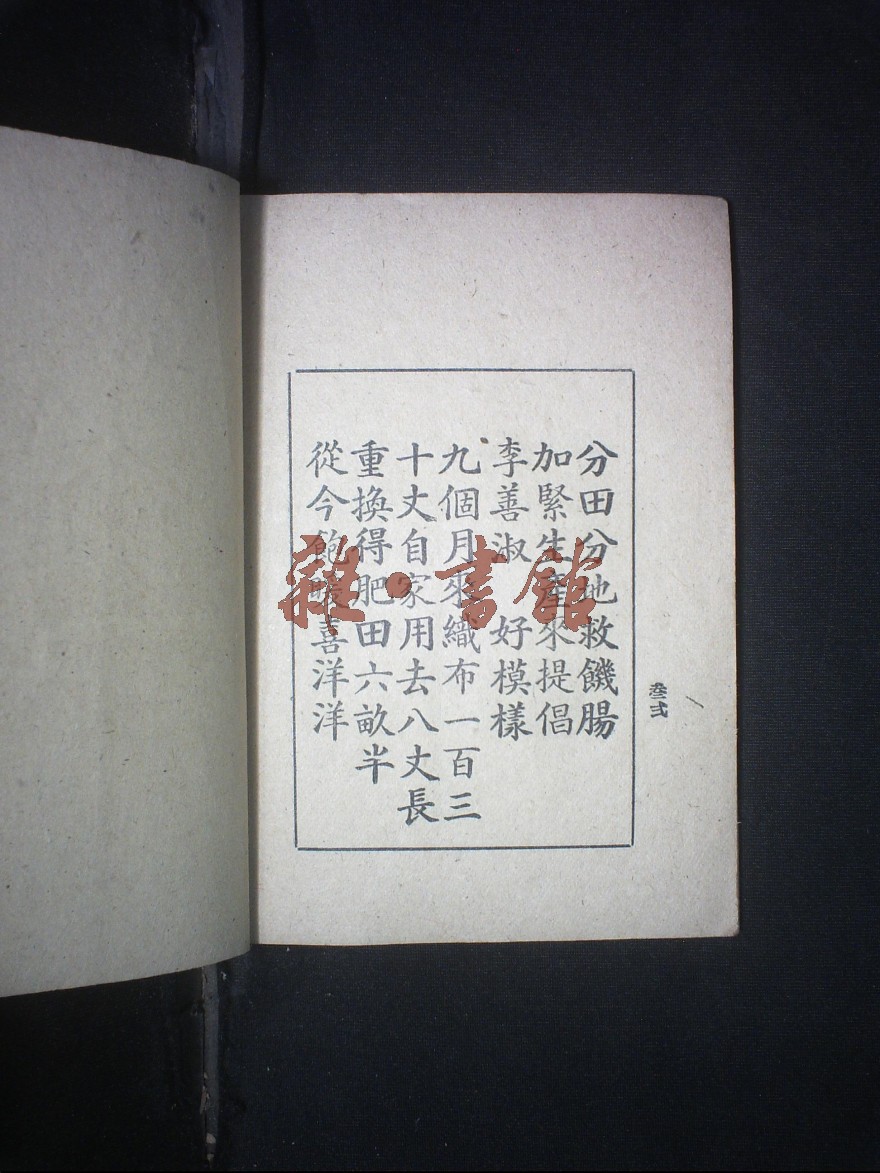 分田分地救饑腸
加緊生產來提倡
李善淑 好模樣
九個月來織布一百三
十丈自家用去八丈長
重換得肥田六畝半
從今飽暖喜洋洋
雜·書館